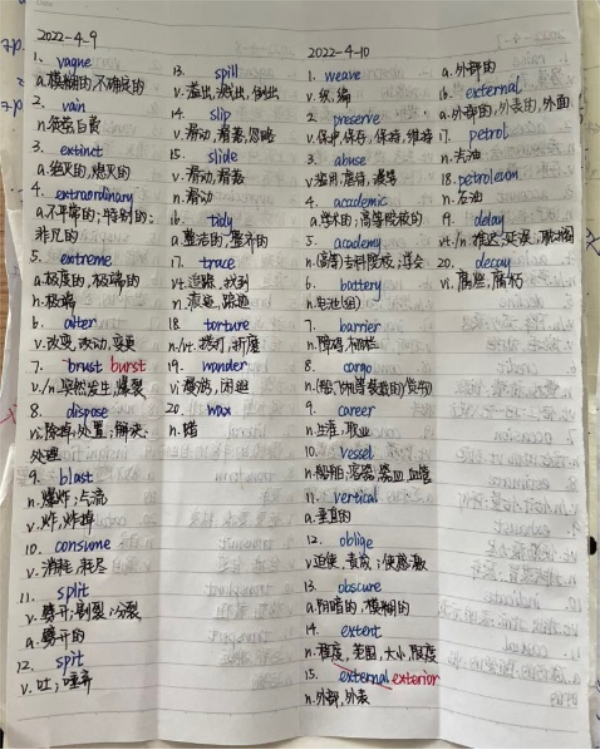 2022-4-9
1. vague
a.模糊的,不确定的
2. vain
n.徒劳,白费
3. extinct
a.绝灭的,熄灭的
4. extraordinary
a.不平常的;特别的;
非凡的
5. extreme
a.极度的,极端的
n.极端
6. alter
v.改变,改动,变更
7. brust burst
v./n.突然发生,爆裂
8. dispose
vi.除掉;处置;解决;
处理
9. blast
n.爆炸;气流
v.炸,炸掉
10. consume
v.消耗,耗尽
11. split
v.劈开;割裂;分裂
a.劈开的
12. spit
v.吐;唾弃
13. spill
v.溢出,溅出,倒出
14. slip
v.滑动,滑落,忽略
15. slide
v.滑动,滑落
n.滑动
16. tidy
a.整洁的,整齐的
17. trace
vt.追踪,找到
n.痕迹,踪迹
18. torture
n./vt.拷打,折磨
19. wander
vi.漫游,闲逛
20. wax
n.蜡
2022-4-10
1. weave
v.织,编
2. preserve
v.保护,保存,保持,维持
3. abuse
v.滥用,虐待,谩骂
4. academic
a.学术的;高等院校的
5. academy
n.(高等)专科院校;学会
6. battery
n.电池(组)
7. barrier
n.障碍,栅栏
8. cargo
n.(船,飞机等装载的)货物
9. career
n.生涯,职业
10. vessel
n.船舶;容器;器皿,血管
11. vertical
a.垂直的
12. oblige
v.迫使,责成;使感激
13. obscure
a.阴暗的,模糊的
14. extent
n.程度,范围,大小,限度
15. external exterior
n.外部,外表
a.外部的
16. external
a.外部的,外表的,外面
17. petrol
n.汽油
18. petroleum
n.石油
19. delay
vt./n.推迟,延误,耽搁
20. decay
vi.腐烂,腐朽